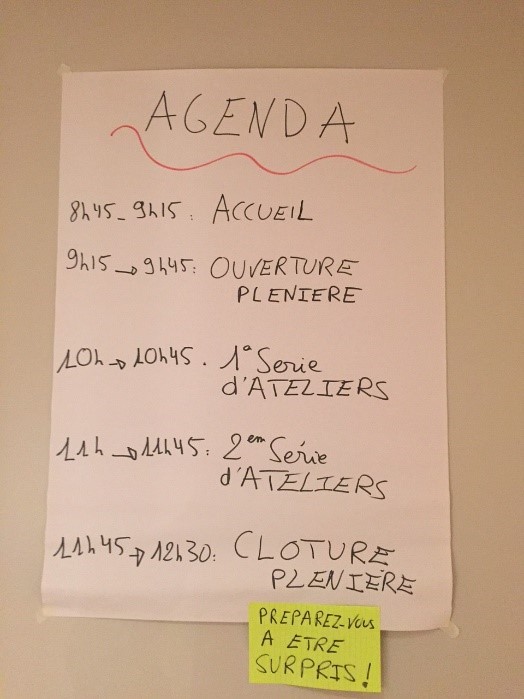 AGENDA
8h45_9h15: ACCUEIL
9h15→9h45: OUVERTURE
PLENIERE
10h→10h45. 1ª Serie
d'ATELIERS
11h→11h45: 2em Série
d'ATELIERS
11h45→12h30: CLOTURE
PLENIERE
PREPAREZ-VOUS
A ETRE
SURPRIS!